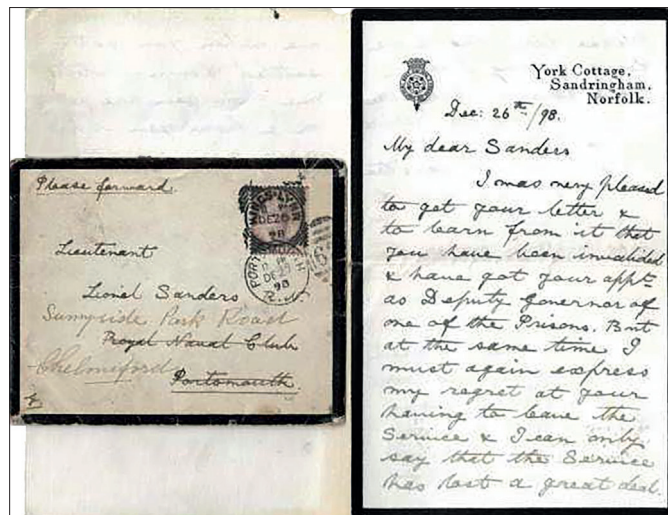 Please forward.
Lieutenant
Lionel Sanders
R.N.
Sunnyside Park Road
Royal Naval Club
Chelmsford
Portsmouth.
KING'S LYNN
DE 26
98
PORTSMOUTH
DE 27
98
York Cottage,
Sandringham,
Norfolk.
Dec: 26th/98.
My dear Sanders
I was very pleased
to get your letter &
to learn from it that
you have been invalided
& have got your appt
as Deputy Governor of
one of the Prisons. But
at the same time I
must again express
my regret at your
having to leave the
Service & I can only
say that the Service
has lost a great deal.